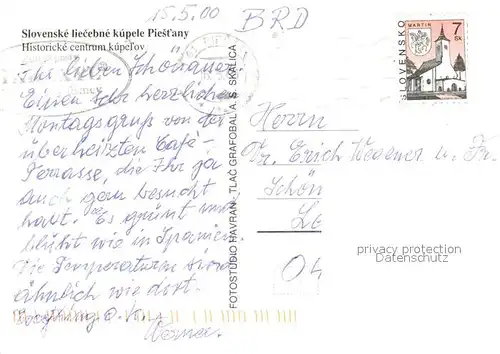 15.5.00 BRD
Slovenské liečebné kúpele Piešťany
Historické centrum kúpeľov
Ihr lieben Schönauer!
Einen sehr herzlichen
Montagsgruß von der
überheizten Café-
Terrasse, die Ihr ja
auch gern besucht
habt. Es grünt und
blüht wie in Spanien.
Die Temperaturen sind
ähnlich wie dort.
Werner
FOTOSTUDIO HAVRAN · TLAČ GRAFOBAL A. S. SKALICA
MARTIN
7
Sk
SLOVENSKO
Herrn
Dr. Erich u. Fr.
Schön
privacy protection
Datenschutz